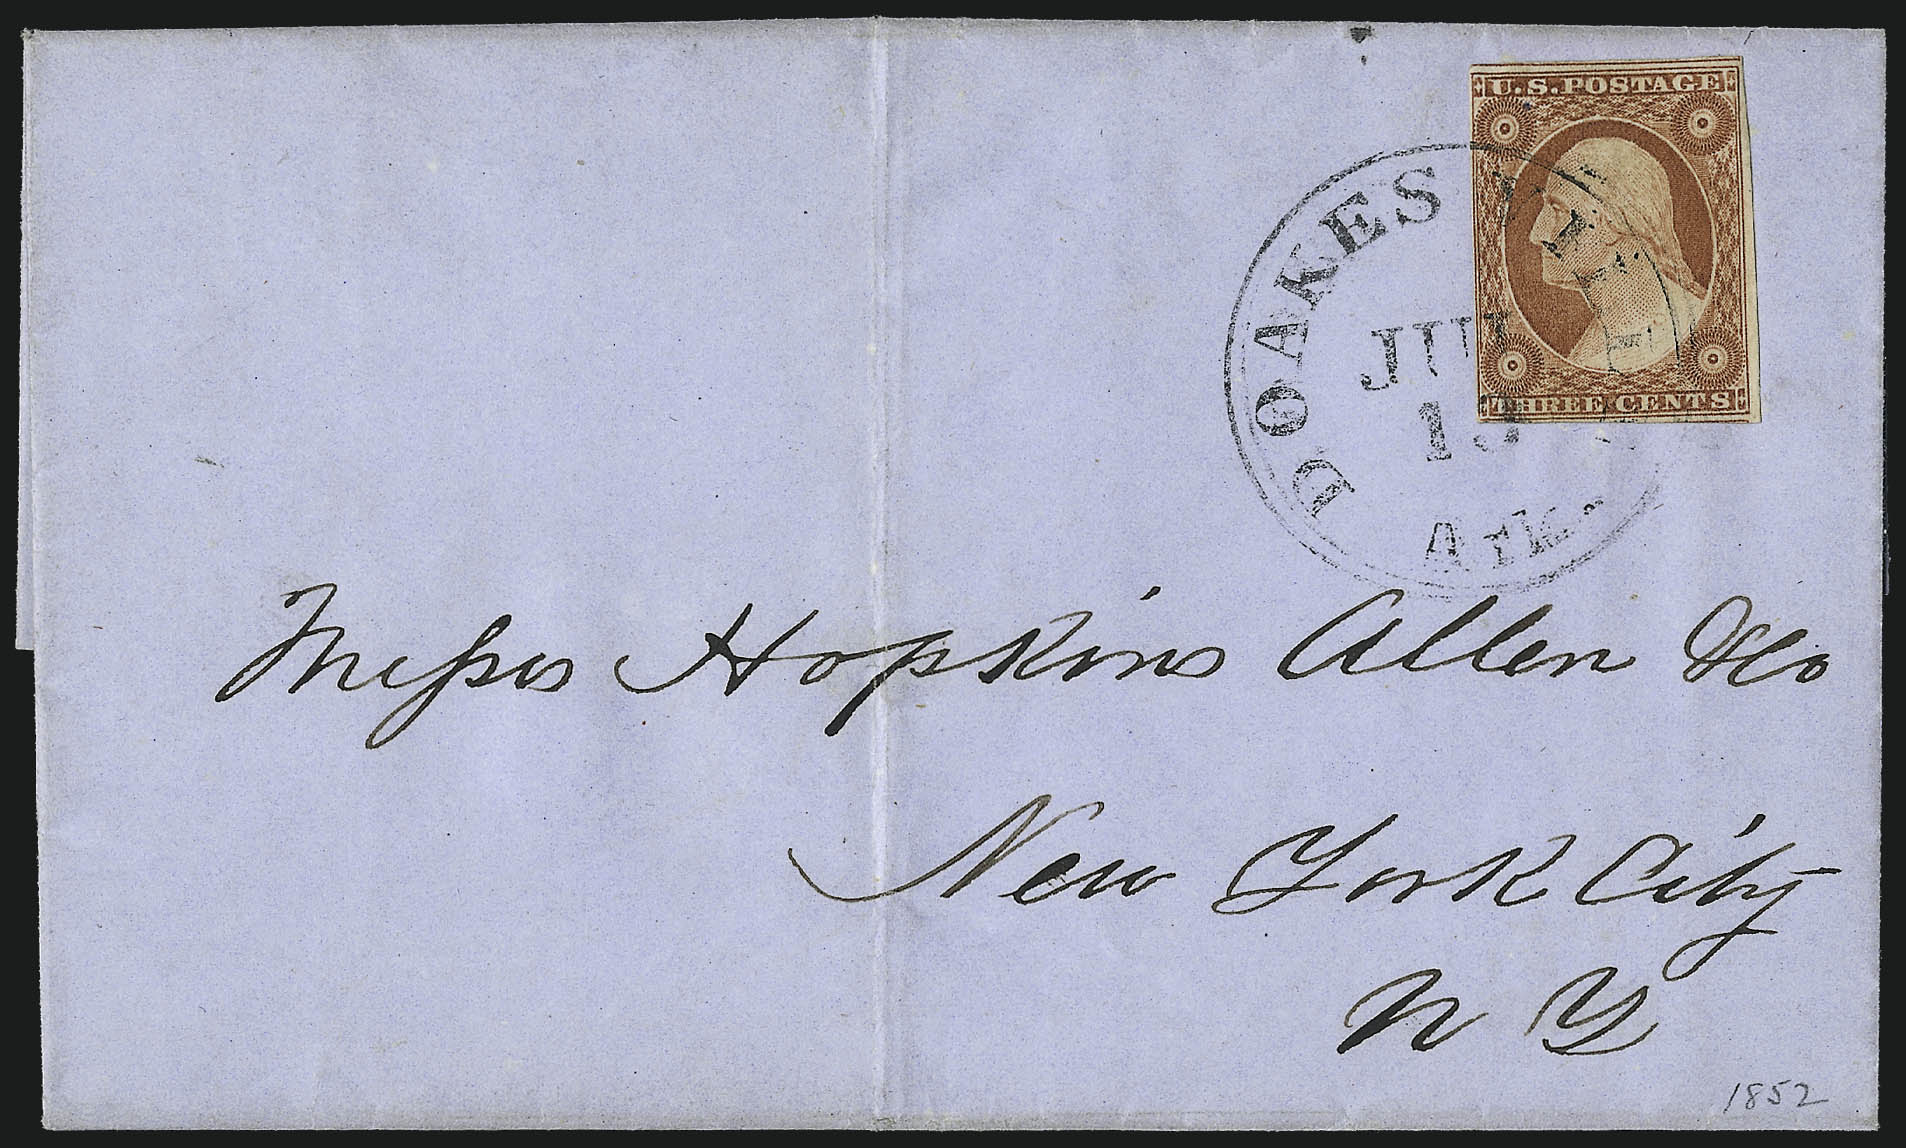 U.S. POSTAGE
THREE CENTS
DOAKES
13
Ark.
Messrs Hopkins Allen & Co
New York City
N Y
1852